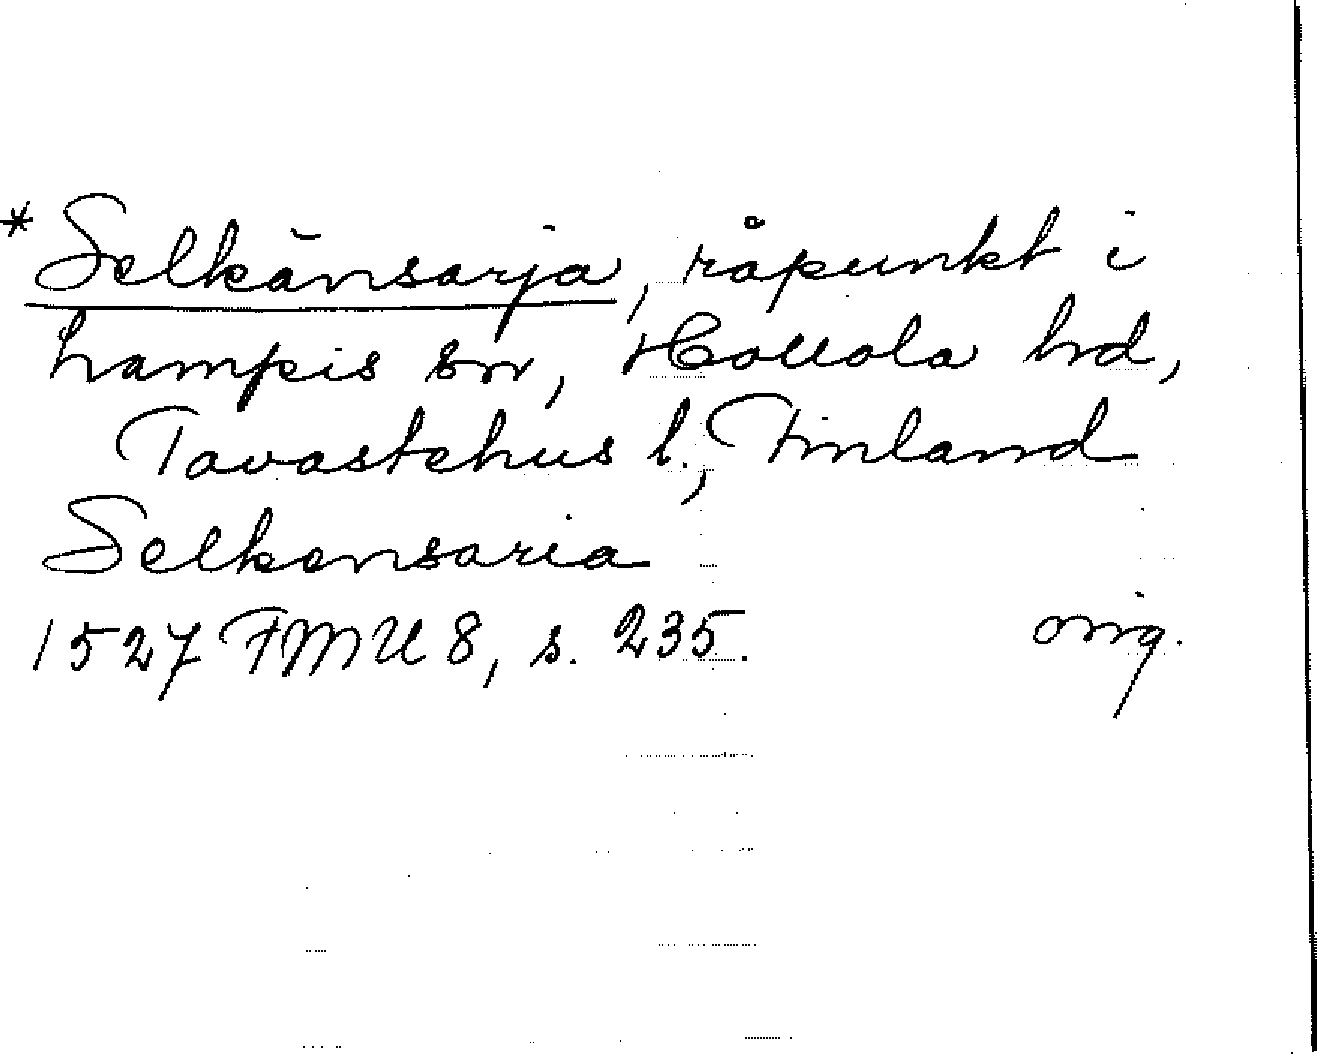 * Selkänsarja, råpunkt i
hampis sn, Hollola hd,
Tavastehus l., Finland
Selkensaria
1527 FMU 8, s. 235. orig.